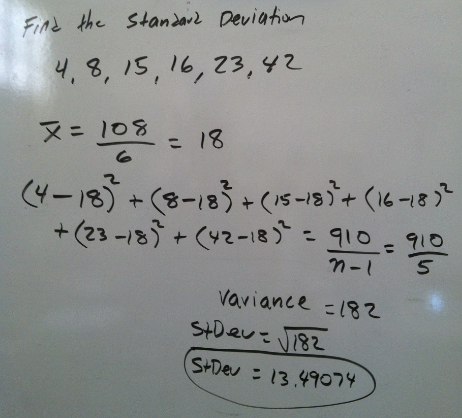 Find the Standard Deviation
4, 8, 15, 16, 23, 42
x̄ = 108/6 = 18
(4-18)² + (8-18)² + (15-18)² + (16-18)²
+ (23-18)² + (42-18)² = 910/n-1 = 910/5
Variance = 182
StDev = √182
StDev = 13.49074